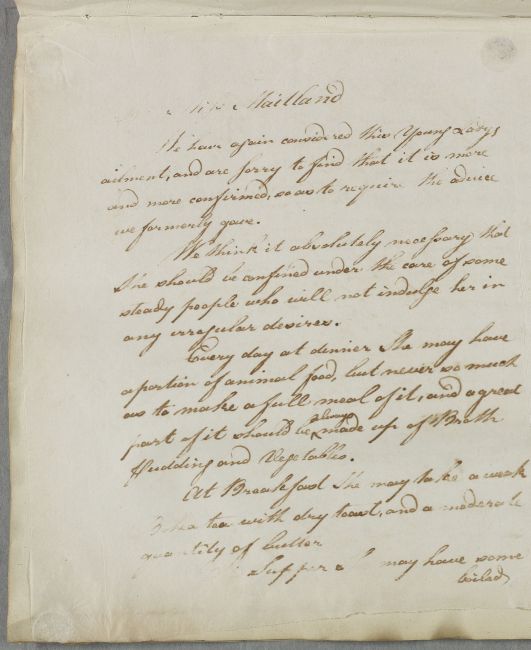 Miss Maitland
We have again considered this Young Ladys
ailment, and are sorry to find that it is more
and more confirmed, so as to require the advice
we formerly gave.
We think it absolutely necessary that
She should be confined under the care of some
steady people who will not indulge her in
any irregular desires.
Every day at dinner She may have
a portion of animal food, but never so much
as to make a full meal of it, and a great
part of it should be always made up of Broth
Pudding and Vegetables.
At Breakfast She may take a weak
tea with dry toast, and a moderate
quantity of butter
Supper She may have some
boiled